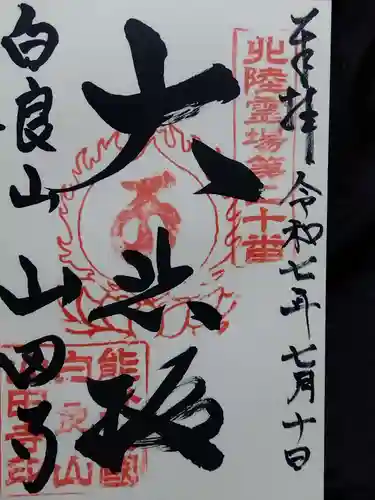 奉拝 令和七年七月十日
北陸霊場第二十番
大悲殿
白良山 山田寺
能登國
白良山
山田寺印